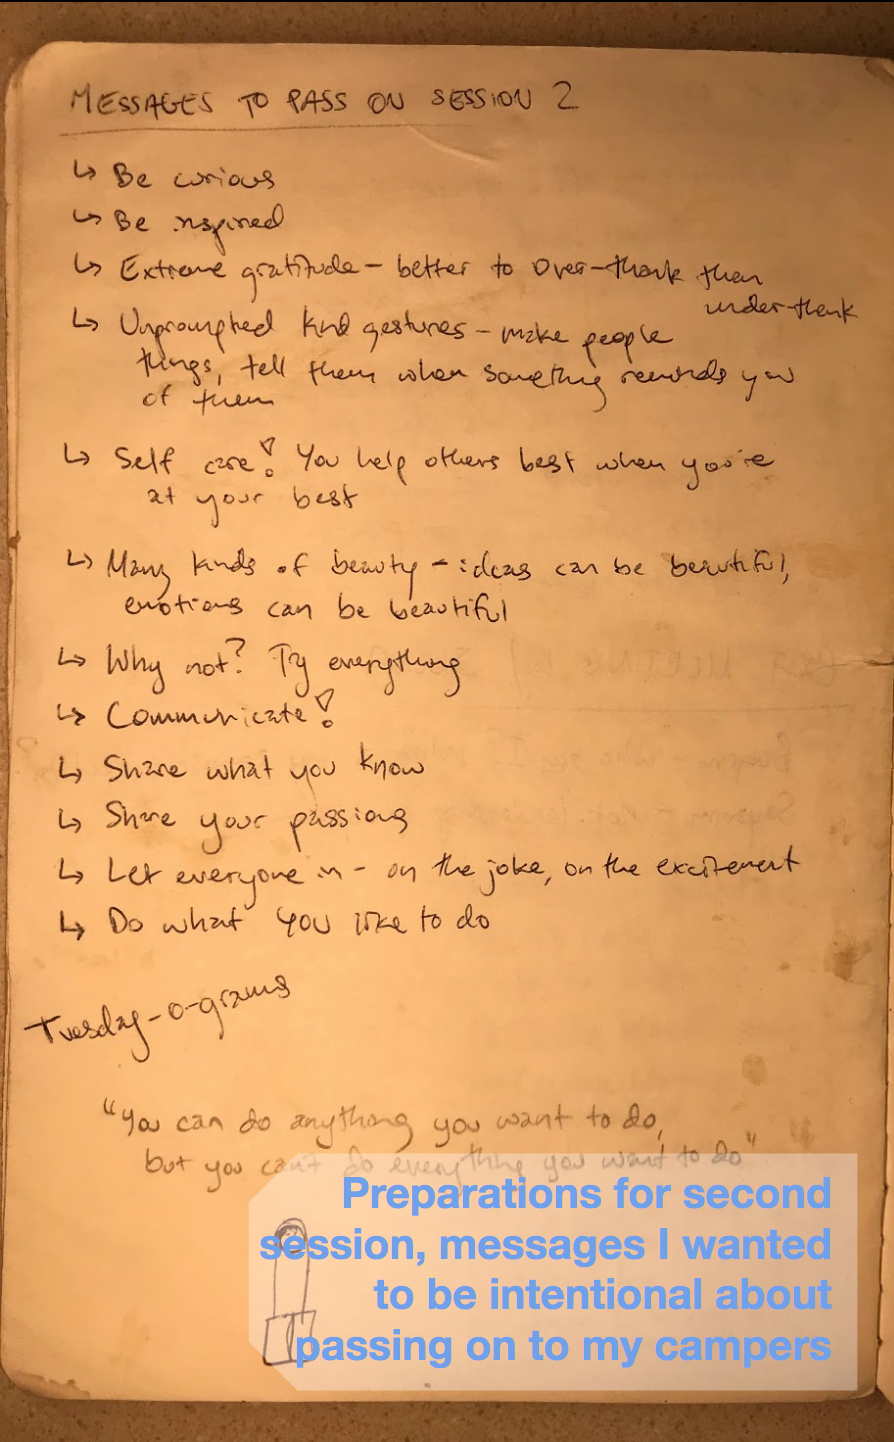 MESSAGES TO PASS ON SESSION 2
↳ Be curious
↳ Be inspired
↳ Extreme gratitude – better to over-thank than
under-thank
↳ Unprompted kind gestures – make people
things, tell them when something reminds you
of them
↳ Self care! You help others best when you're
at your best
↳ Many kinds of beauty – ideas can be beautiful,
emotions can be beautiful
↳ Why not? Try everything
↳ Communicate!
↳ Share what you know
↳ Share your passions
↳ Let everyone in – on the joke, on the excitement
↳ Do what YOU like to do
Tuesday-o-grams
"You can do anything you want to do,
but you can't do everything you want to do"
Preparations for second
session, messages I wanted
to be intentional about
passing on to my campers